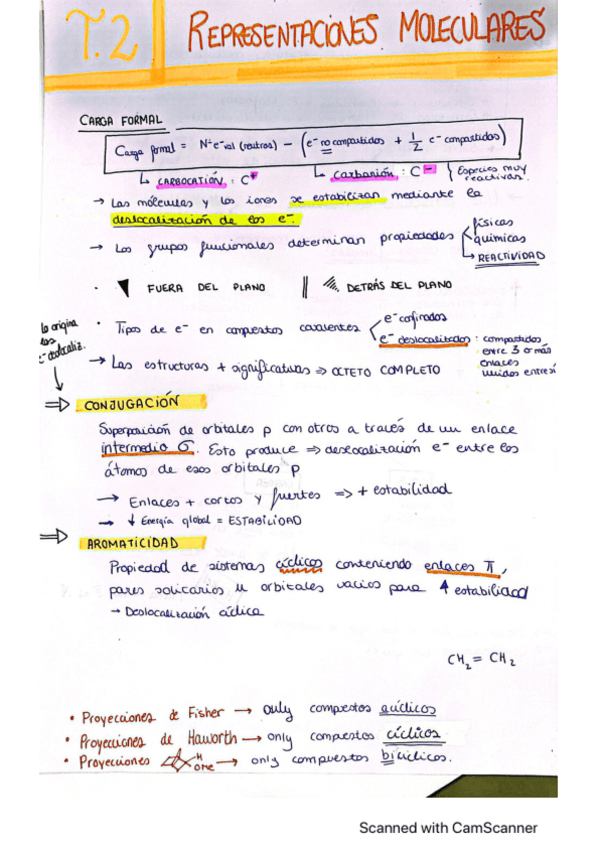 T.2 REPRESENTACIONES MOLECULARES
CARGA FORMAL
Carga formal = Nº e⁻ val (neutros) − (e⁻ no compartidos + 1/2 e⁻ compartidos)
↳ CARBOCATIÓN : C⁺ ↳ Carbanión : C⁻ { Especies muy
reactivas.
→ Las moléculas y los iones se estabilizan mediante la
deslocalización de los e⁻.
→ Los grupos funcionales determinan propiedades
físicas
químicas
REACTIVIDAD
· FUERA DEL PLANO DETRÁS DEL PLANO
lo origina
los
e⁻ deslocaliz.
· Tipos de e⁻ en compuestos covalentes
e⁻ confinados
e⁻ deslocalizados : compartidos
entre 3 o más
enlaces
unidos entre sí
→ Las estructuras + significativas => OCTETO COMPLETO
=> CONJUGACIÓN
Superposición de orbitales p con otros a través de un enlace
intermedio σ. Esto produce => deslocalización e⁻ entre los
átomos de esos orbitales p
→ Enlaces + cortos y fuertes => + estabilidad
→ ↓ Energía global = ESTABILIDAD
=> AROMATICIDAD
Propiedad de sistemas cíclicos conteniendo enlaces π,
pares solitarios u orbitales vacíos para ↑ estabilidad
→ Deslocalización cíclica
CH₂ = CH₂
· Proyecciones de Fisher → only compestos
· Proyecciones de Haworth → only compestos cíclicos
· Proyecciones → only compuestos bicíclicos.
Scanned with CamScanner